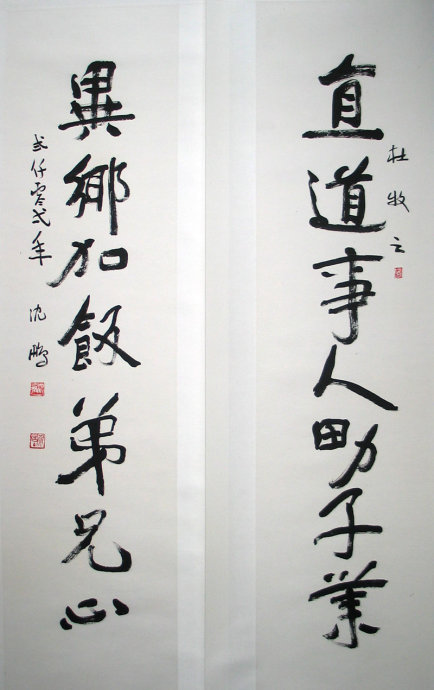 杜牧之
直道事人男子業
異鄉加飯弟兄心
弍仟零弍年 沈鵬